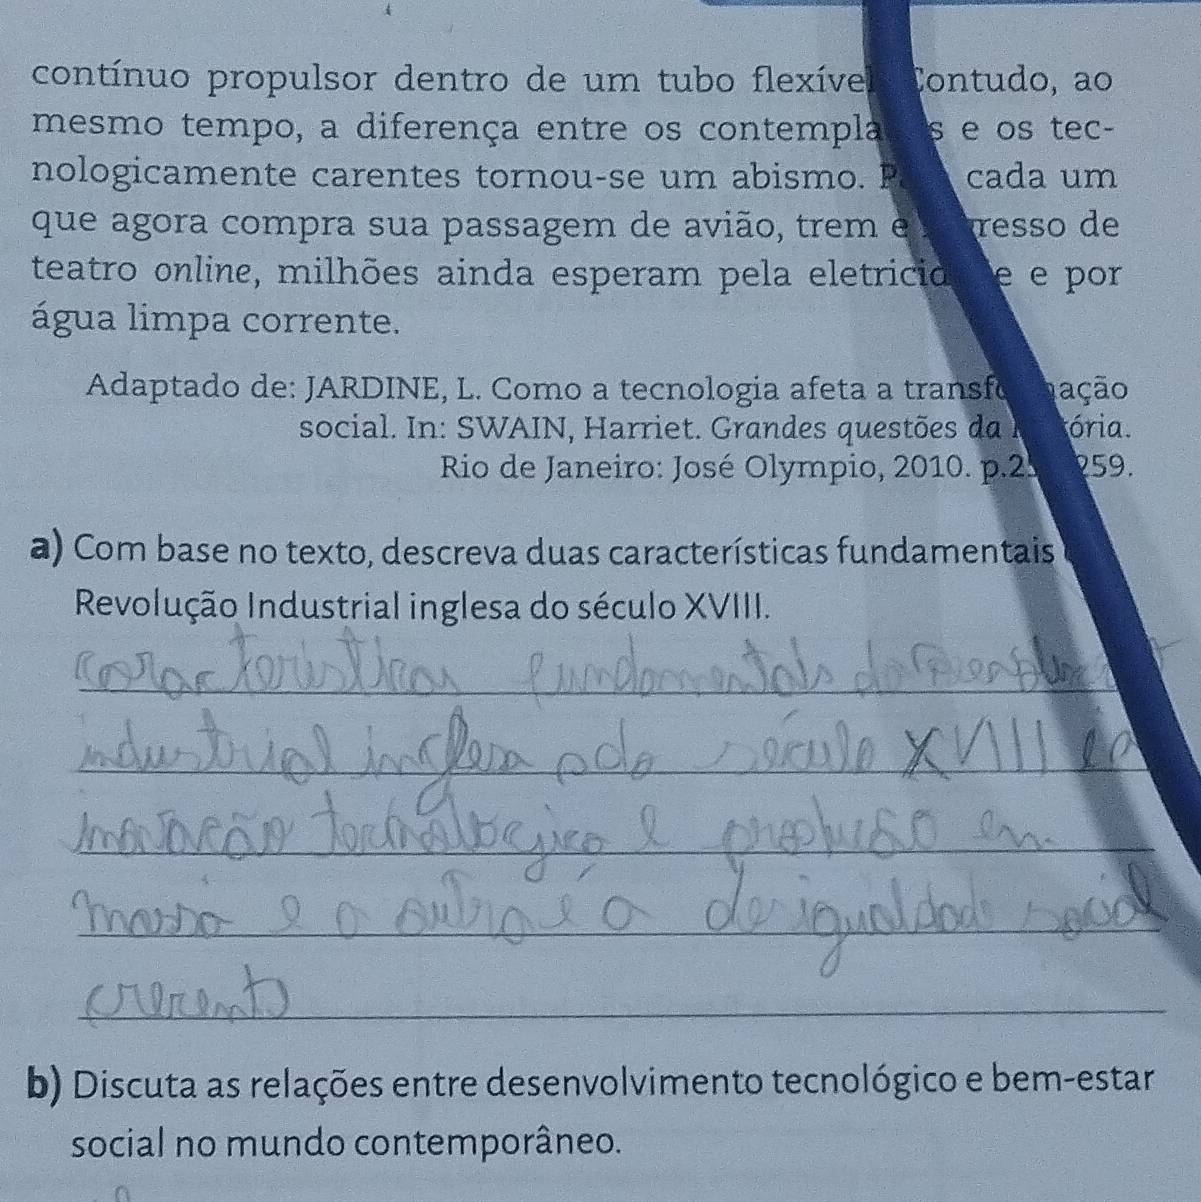 contínuo propulsor dentro de um tubo flexível Contudo, ao
mesmo tempo, a diferença entre os e os tec-
nologicamente carentes tornou-se um abismo. cada um
que agora compra sua passagem de avião, trem e de
teatro online, milhões ainda esperam pela e por
água limpa corrente.
Adaptado de: JARDINE, L. Como a tecnologia afeta a
social. In: SWAIN, Harriet. Grandes questões da
Rio de Janeiro: José Olympio, 2010. 259.
a) Com base no texto, descreva duas características fundamentais
Revolução Industrial inglesa do século XVIII.
fundamentais
industrial inglesa século XVIII
e em
massa e a outra é a desigualdade social
b) Discuta as relações entre desenvolvimento tecnológico e bem-estar
social no mundo contemporâneo.